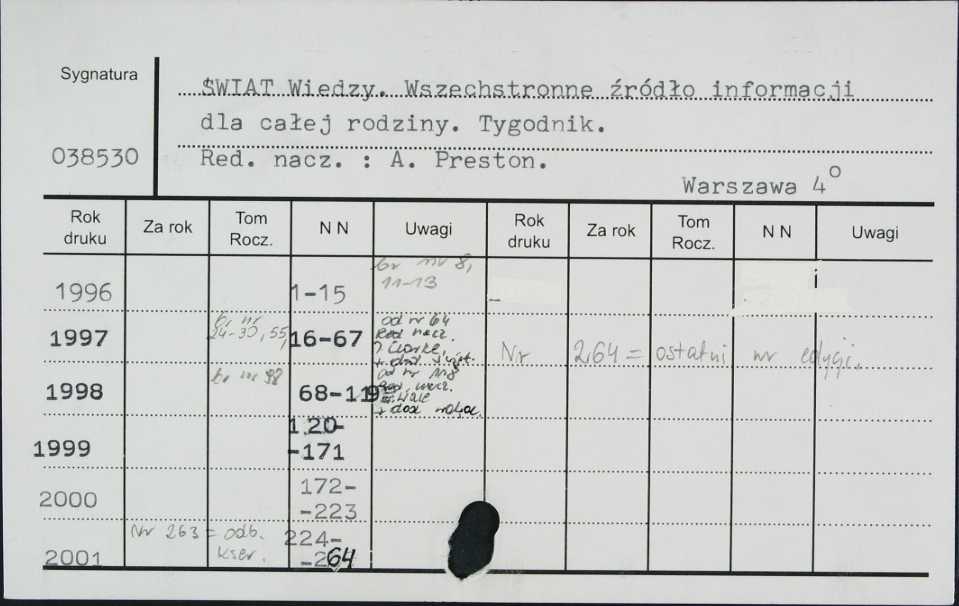 Sygnatura
ŚWIAT Wiedzy. Wszechstronne źródło informacji
dla całej rodziny. Tygodnik.
038530
Red. nacz. : A. Preston.
Warszawa 4°
Rok druku Za rok Tom Rocz. N N Uwagi Rok druku Za rok Tom Rocz. N N Uwagi
br nr 8,
1996 1-15 11-13
1997 br. nr 24-30, 55, 16-67 od nr 64
Red. nacz.
Nr 264 = ostatni nr edycji.
1998 br nr 98 68-119 od nr 118
Red. nacz.
1999 120-
-171
2000 172-
-223
Nr 263 = odb.
kser.
2001 224-
-264